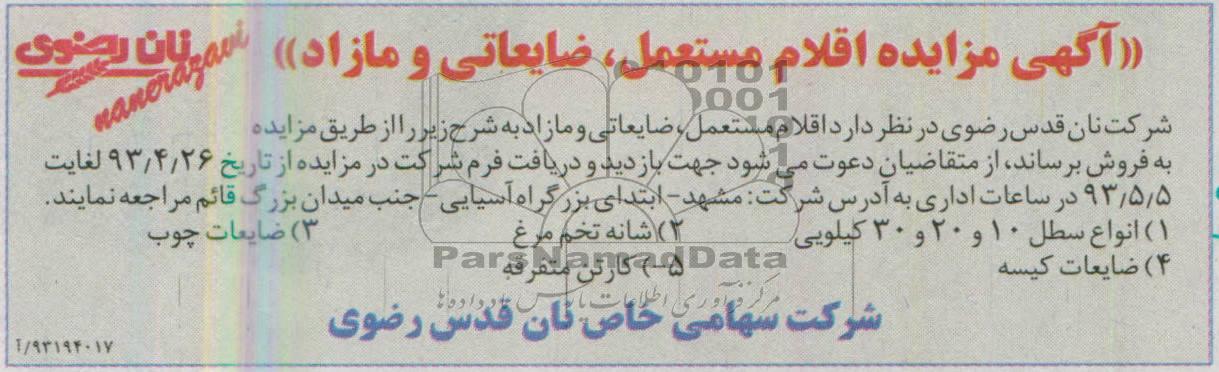 «آگهی مزایده اقلام مستعمل، ضایعاتی و مازاد»
نان رضوی
nanerazavi
شرکت نان قدس رضوی در نظر دارد اقلام مستعمل، ضایعاتی و مازاد به شرح زیر را از طریق مزایده
به فروش برساند، از متقاضیان دعوت می شود جهت بازدید و دریافت فرم شرکت در مزایده از تاریخ ۹۳/۴/۲۶ لغایت
۹۳/۵/۵ در ساعات اداری به آدرس شرکت: مشهد- ابتدای بزرگراه آسیایی - جنب میدان بزرگ قائم مراجعه نمایند.
۱) انواع سطل ۱۰ و ۲۰ و ۳۰ کیلویی ۲) شانه تخم مرغ ۳) ضایعات چوب
۴) ضایعات کیسه ۵-) کارتن متفرقه
ParsNamadData
مرکز فرآوری اطلاعات پارس نماد داده‌ها
شرکت سهامی خاص نان قدس رضوی
۹۳۱۹۴۰۱۷/آ